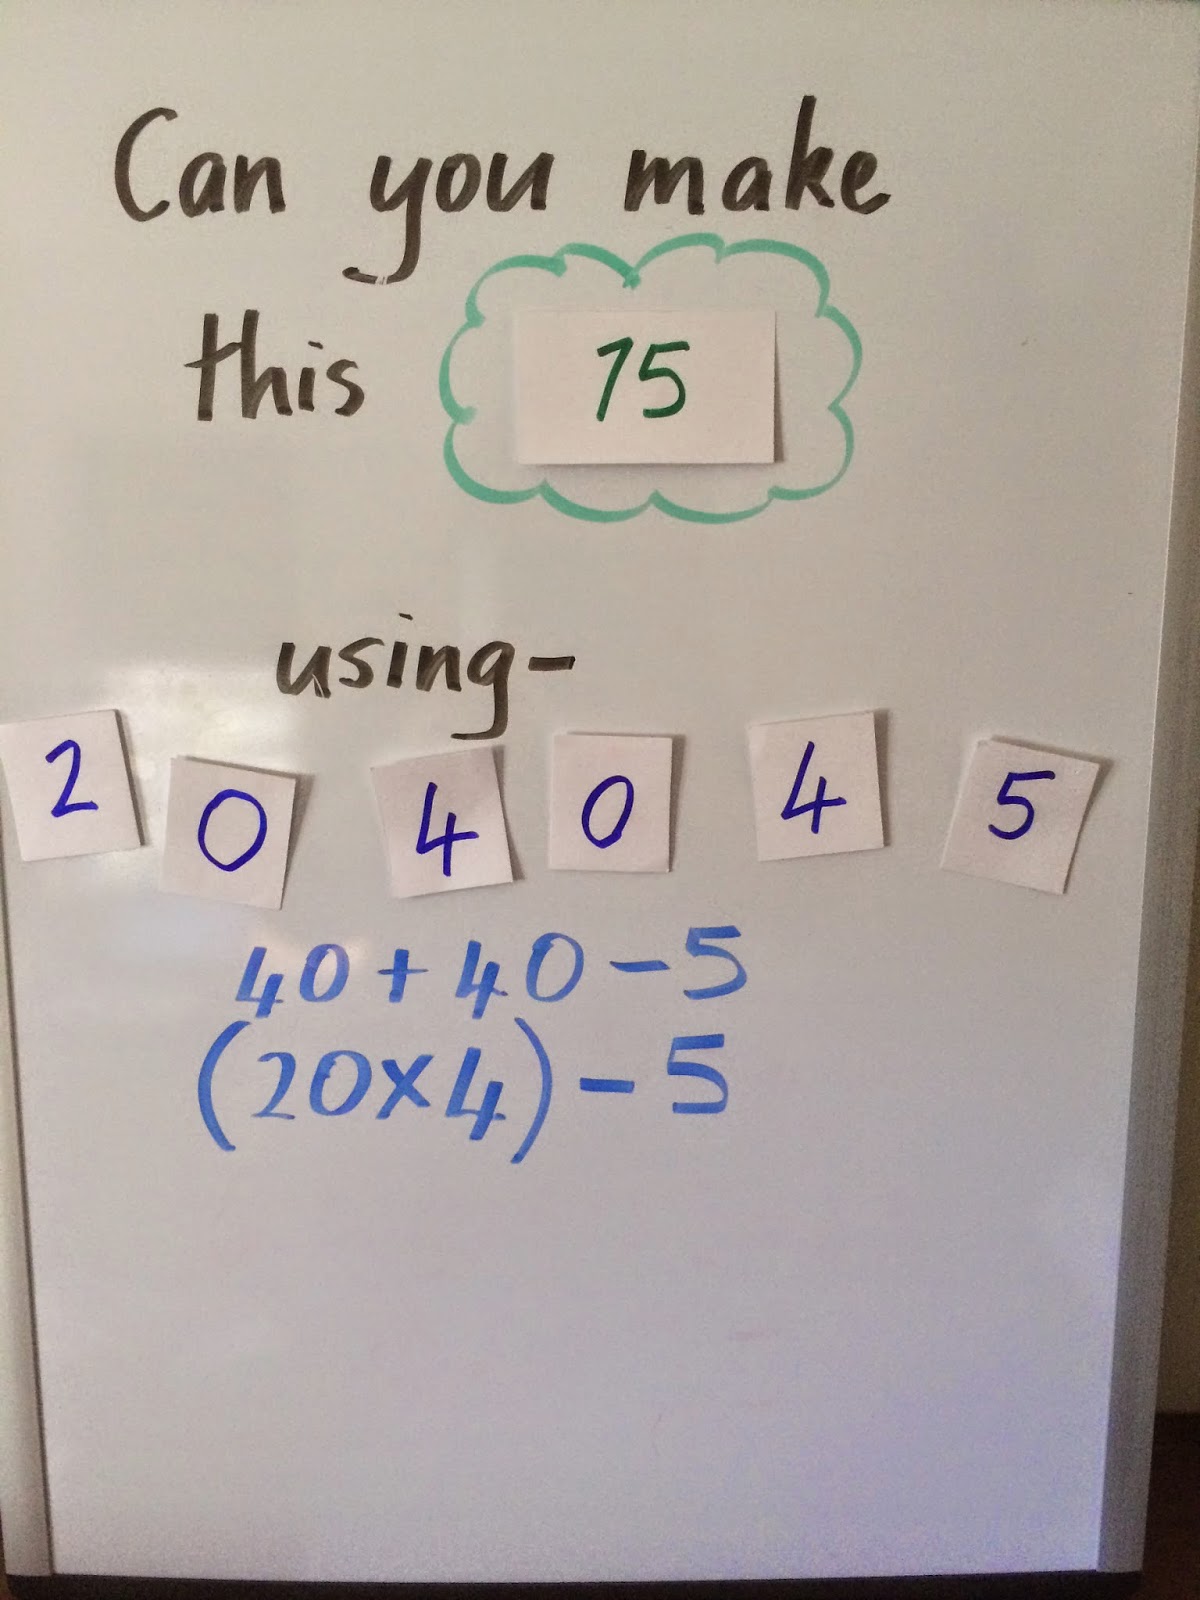 Can you make
this 75
using-
2 0 4 0 4 5
40 + 40 - 5
(20 x 4) - 5